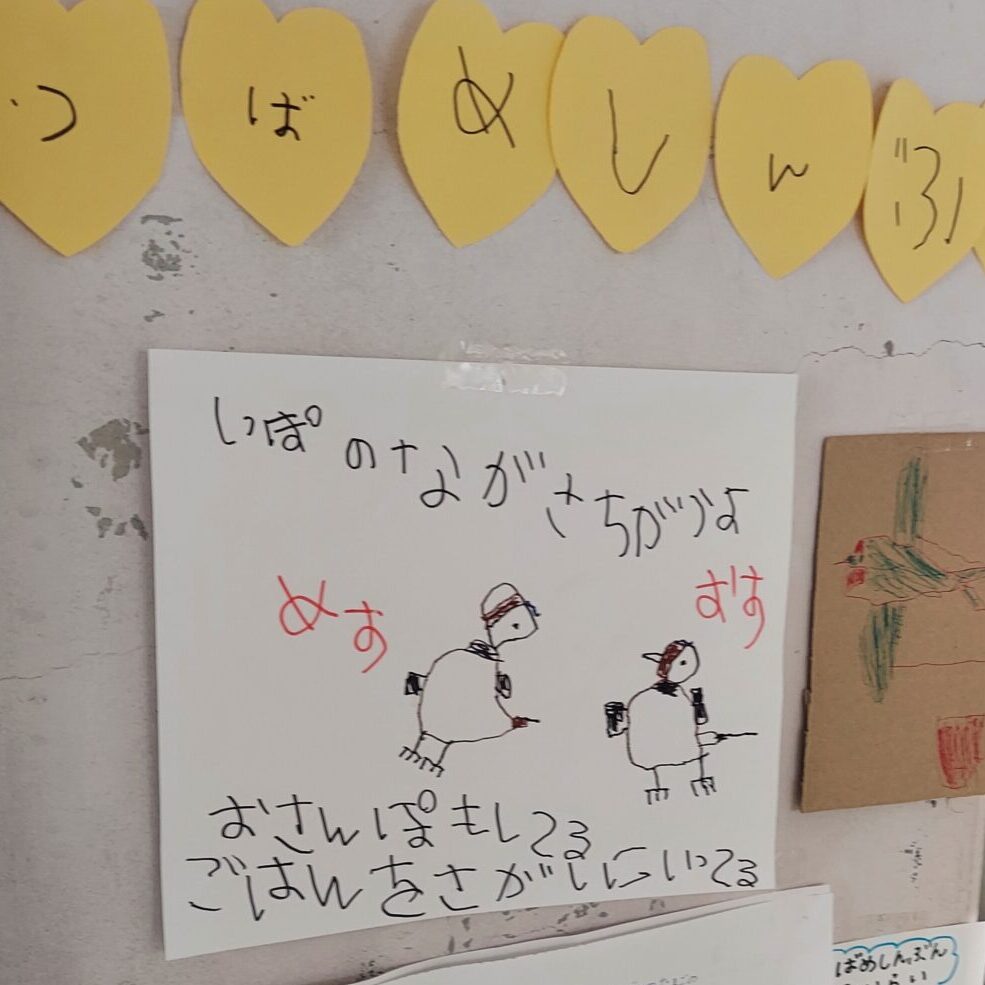 つばめしんぶ
しっぽのながさちがうよ
めす おす
おさんぽもしてる
ごはんをさがしにいってる
ばめしんぶん